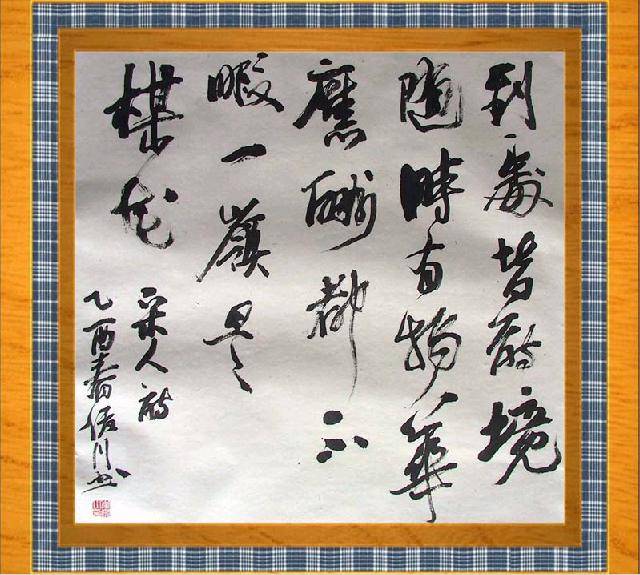 到處皆詩境
隨時有物華
應酬都不
暇一嶺是
楳花
宋人詩
乙酉川书